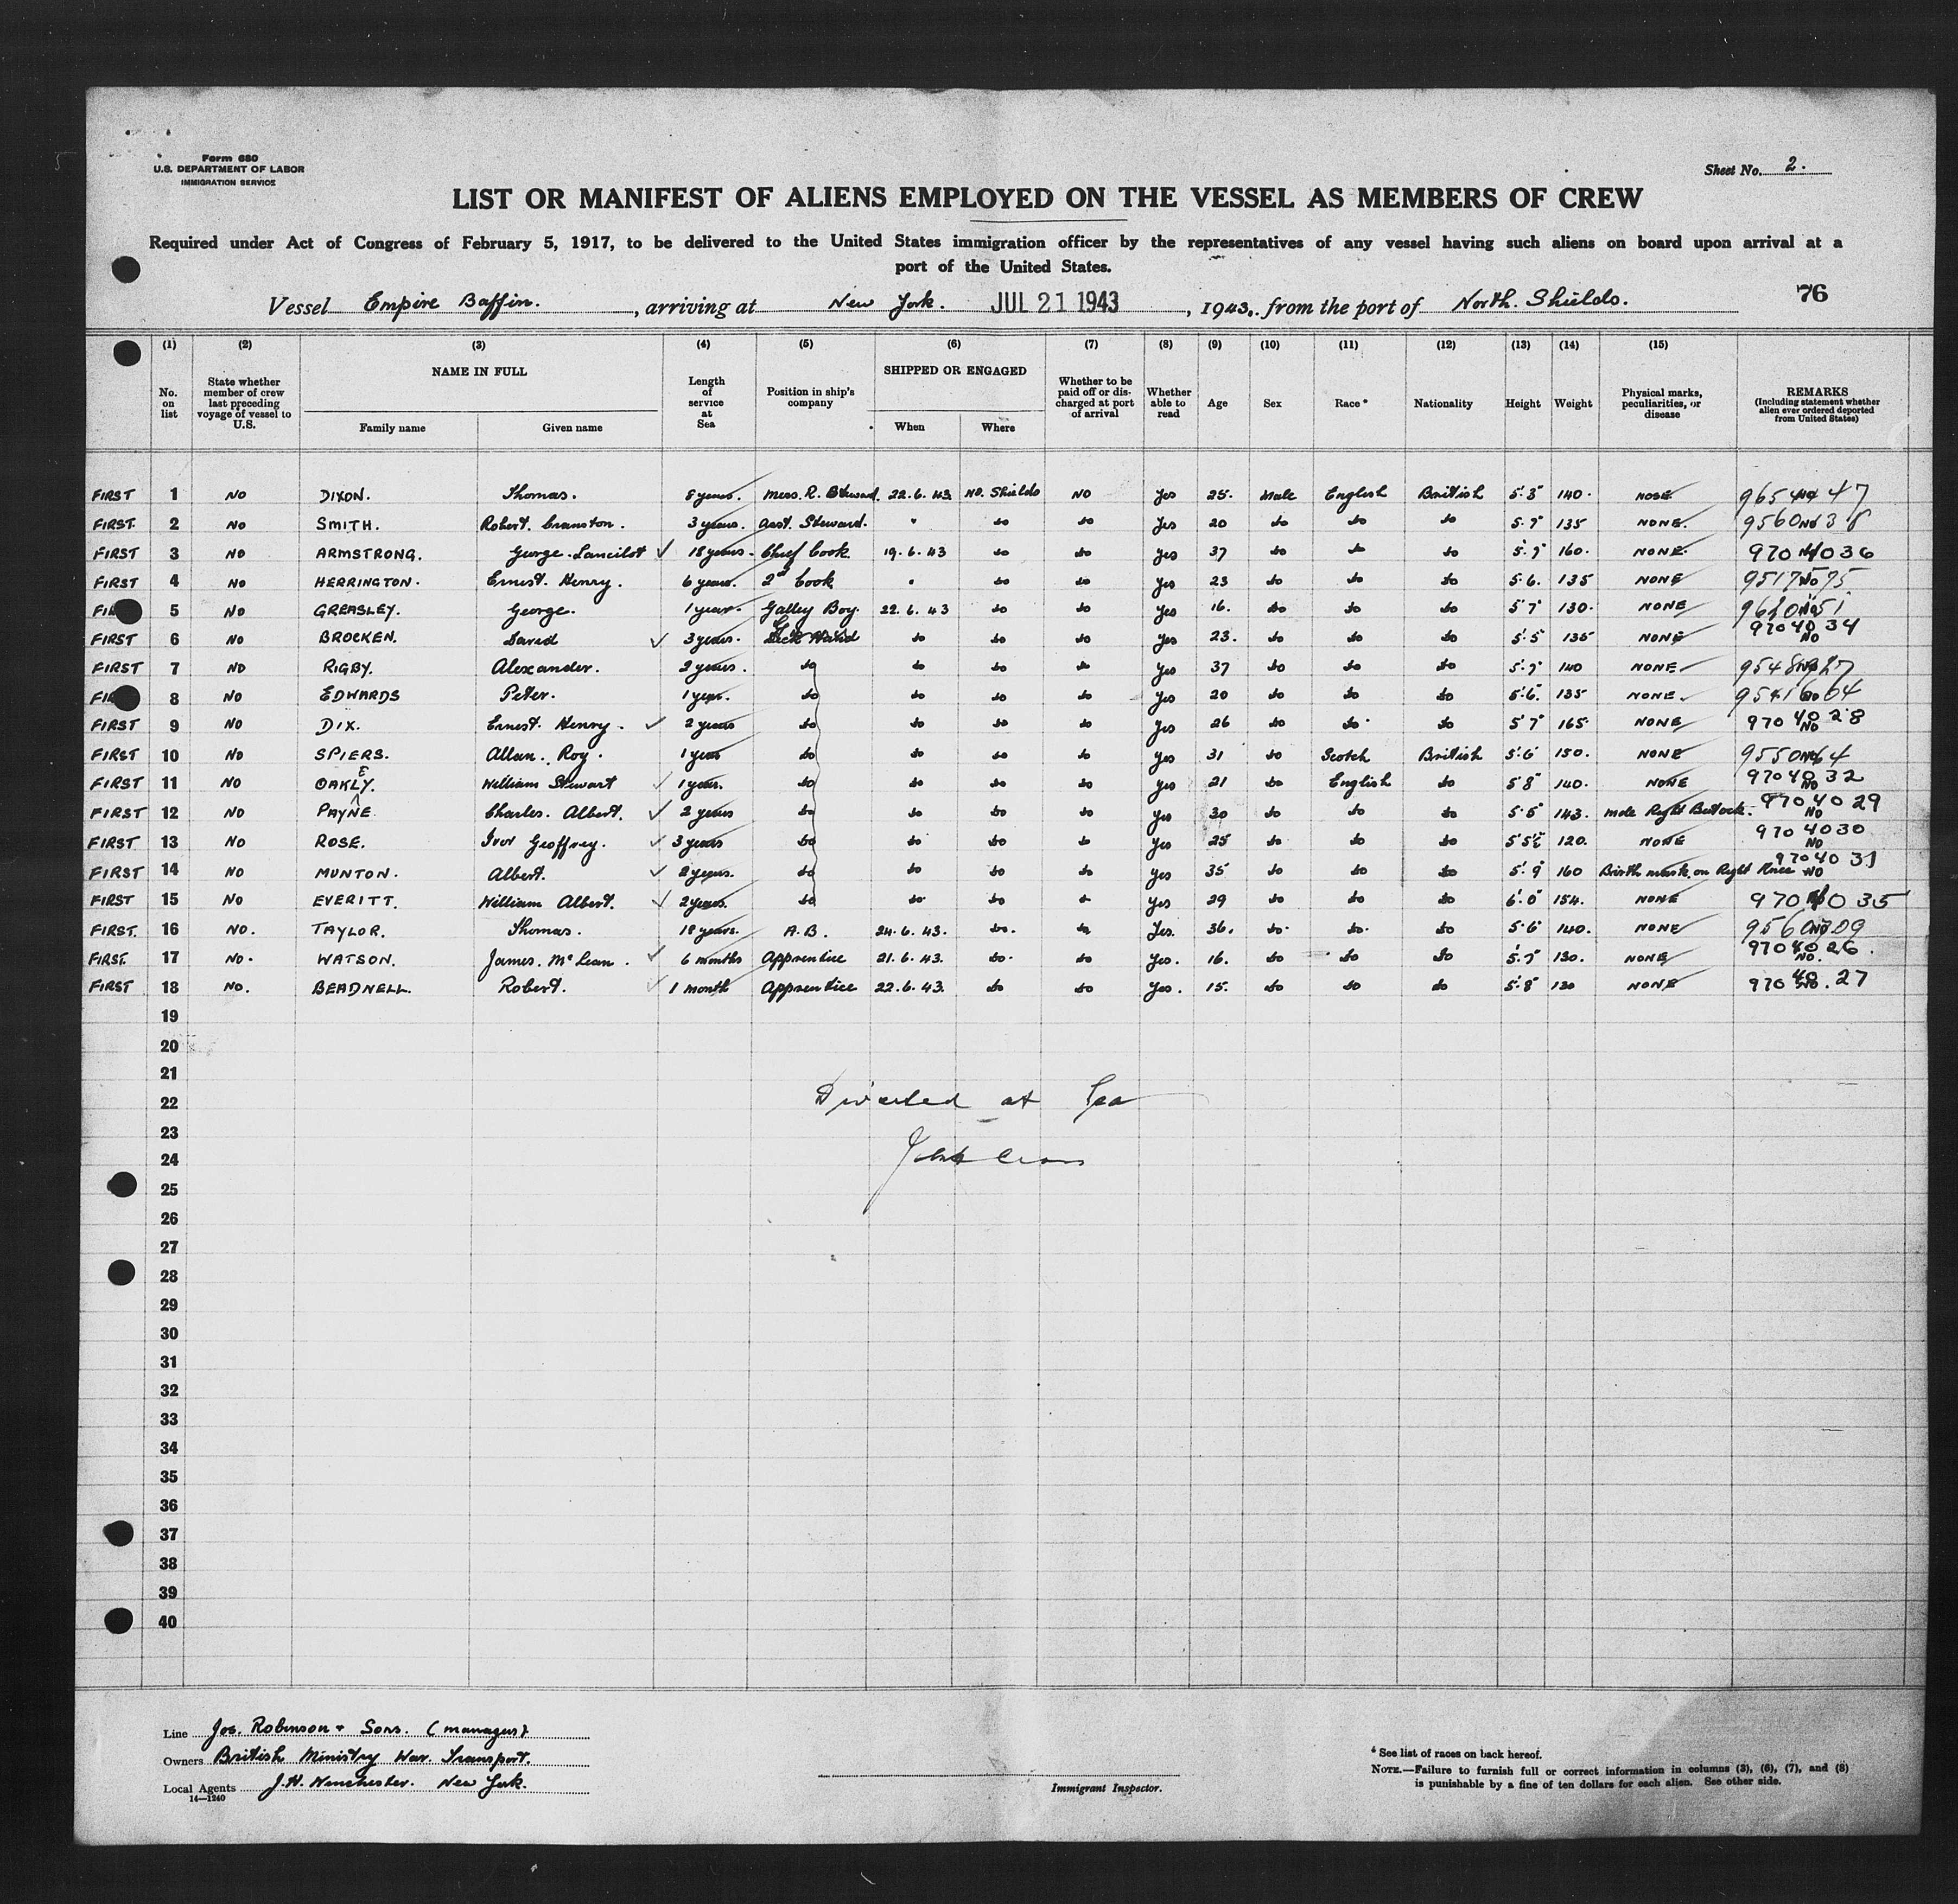 Form 680
U.S. DEPARTMENT OF LABOR
IMMIGRATION SERVICE
Sheet No. 2.
LIST OR MANIFEST OF ALIENS EMPLOYED ON THE VESSEL AS MEMBERS OF CREW
Required under Act of Congress of February 5, 1917, to be delivered to the United States immigration officer by the representatives of any vessel having such aliens on board upon arrival at a
port of the United States.
Vessel Empire Baffin. , arriving at New York. JUL 21 1943 , 1943, from the port of North. Shields. 76
(1) (2) (3) (4) (5) (6) (7) (8) (9) (10) (11) (12) (13) (14) (15)
No. on list
State whether member of crew last preceding voyage of vessel to U.S.
NAME IN FULL
Family name Given name
Length of service at Sea
Position in ship's company
SHIPPED OR ENGAGED
When Where
Whether to be paid off or discharged at port of arrival
Whether able to read
Age Sex Race * Nationality Height Weight
Physical marks, peculiarities, or disease
REMARKS
(Including statement whether alien ever ordered deported from United States)
FIRST 1 NO DIXON. Thomas. 8 years. Mess. R. Steward. 22.6.43 NO. Shields NO Yes 25. Male English British 5.3" 140. NONE
FIRST. 2 NO SMITH. Robert. Cranston. 3 years. Asst. Steward. " do do Yes 20 do do do 5.7" 135 NONE.
FIRST 3 NO ARMSTRONG. George. Lancilot ✓ 18 years. Chief Cook 19.6.43 do do Yes 37 do do do 5.7" 160. NONE. 970 40 36
FIRST 4 NO HERRINGTON. Ernest. Henry. 6 years. 2nd Cook " do do Yes 23 do do do 5.6. 135 NONE
5 NO GREASLEY. George. 1 year. Galley Boy. 22.6.43 do do Yes 16. do do do 5'7" 130. NONE
FIRST 6 NO BROCKEN. David ✓ 3 years. do do do Yes 23. do do do 5'.5 135 NONE 970 40 34 NO
FIRST 7 NO RIGBY. Alexander. 2 years. do do do do Yes 37 do do do 5.7" 140 NONE
8 NO EDWARDS Peter. 1 year. do do do do Yes 20 do do do 5'6". 135 NONE.
FIRST 9 NO DIX. Ernest. Henry. ✓ 2 years do do do do Yes 26 do do do 5'7" 165. NONE 970 40 28 NO
FIRST 10 NO SPIERS. Allan. Roy. 1 year do do do do Yes 31 do Scotch British 5'.6" 150. NONE
FIRST 11 NO OAKLEY. William Stewart ✓ 1 year. do do do do Yes 21 do English do 5'8" 140. NONE 970 40 32 NO
FIRST 12 NO PAYNE Charles. Albert. ✓ 2 years do do do do Yes 30 do do do 5'.5" 143. mole Right Buttock. 970 40 29 NO
FIRST 13 NO ROSE. Ivor Geoffrey. ✓ 3 years do do do do Yes 25 do do do 5'5½ 120. NONE 970 40 30 NO
FIRST 14 NO MUNTON. Albert. ✓ 2 years. do do do do Yes 35 do do do 5'.9" 160 Birth mark. on Right Knee 970 40 31 NO
FIRST 15 NO EVERITT. William Albert. ✓ 2 years. do do do do Yes 29 do do do 6'.0" 154. NONE 970 40 35
FIRST. 16 NO. TAYLOR. Thomas. 18 years. A.B. 24.6.43. do. do Yes. 36. do. do. do 5.6" 140. NONE
FIRST. 17 NO. WATSON. James. McLean. ✓ 6 months Apprentice 21.6.43. do. do Yes. 16. do do do 5.7" 130. NONE 970 40 26. NO.
FIRST 18 NO. BEADNELL. Robert. ✓ 1 month Apprentice 22.6.43. do do Yes. 15. do do do 5'.8" 130 NONE 970 40. 27
19
20
21
22
Diverted at Sea
23
24
25
26
27
28
29
30
31
32
33
34
35
36
37
38
39
40
Line Jos. Robinson + Sons. (managers)
Owners British Ministry War. Transport.
Local Agents J.H. Winchester. New York.
14—1240
Immigrant Inspector.
* See list of races on back hereof.
NOTE.—Failure to furnish full or correct information in columns (3), (6), (7), and (8)
is punishable by a fine of ten dollars for each alien. See other side.